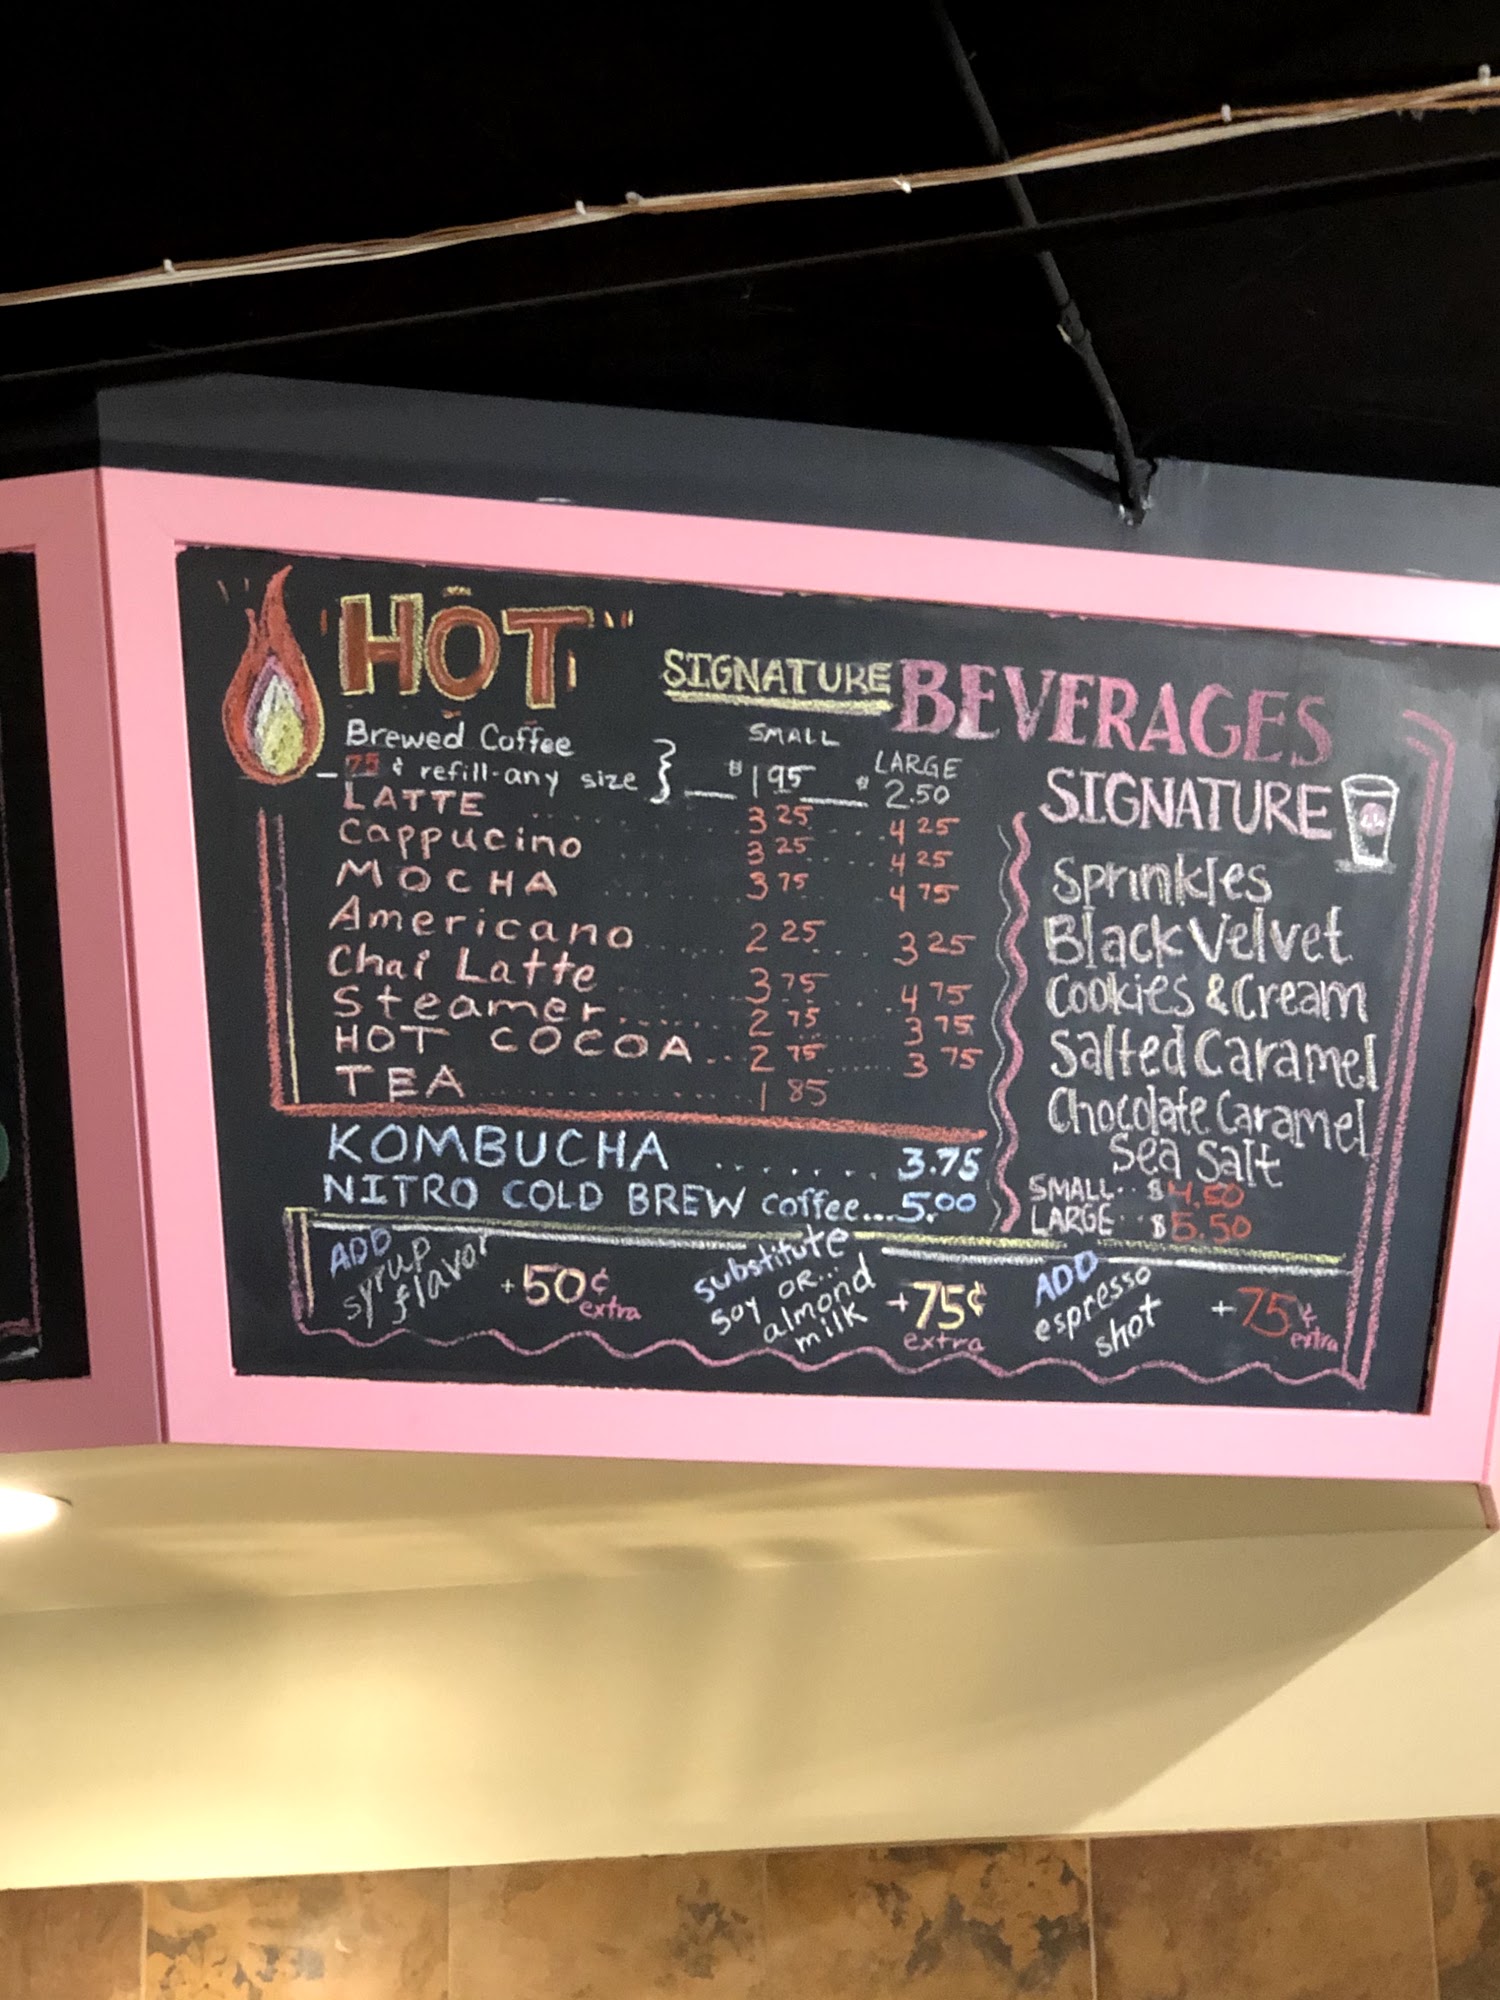 "HOT"
SIGNATURE BEVERAGES
SMALL LARGE
Brewed Coffee
75¢ refill-any size } $1.95 $2.50
LATTE 3 25 4 25
Cappucino 3 25 4 25
MOCHA 3 75 4 75
Americano 2 25 3 25
Chai Latte 3 75 4 75
Steamer 2 75 3 75
HOT COCOA 2 75 3 75
TEA 1 85
KOMBUCHA ....... 3.75
NITRO COLD BREW coffee...5.00
SIGNATURE
Sprinkles
Black Velvet
Cookies & Cream
Salted Caramel
Chocolate Caramel
Sea Salt
SMALL.. $4.50
LARGE.. $5.50
ADD
syrup
flavor
+50¢
extra
substitute
soy OR...
almond
milk
+75¢
extra
ADD
espresso
shot
+75¢
extra